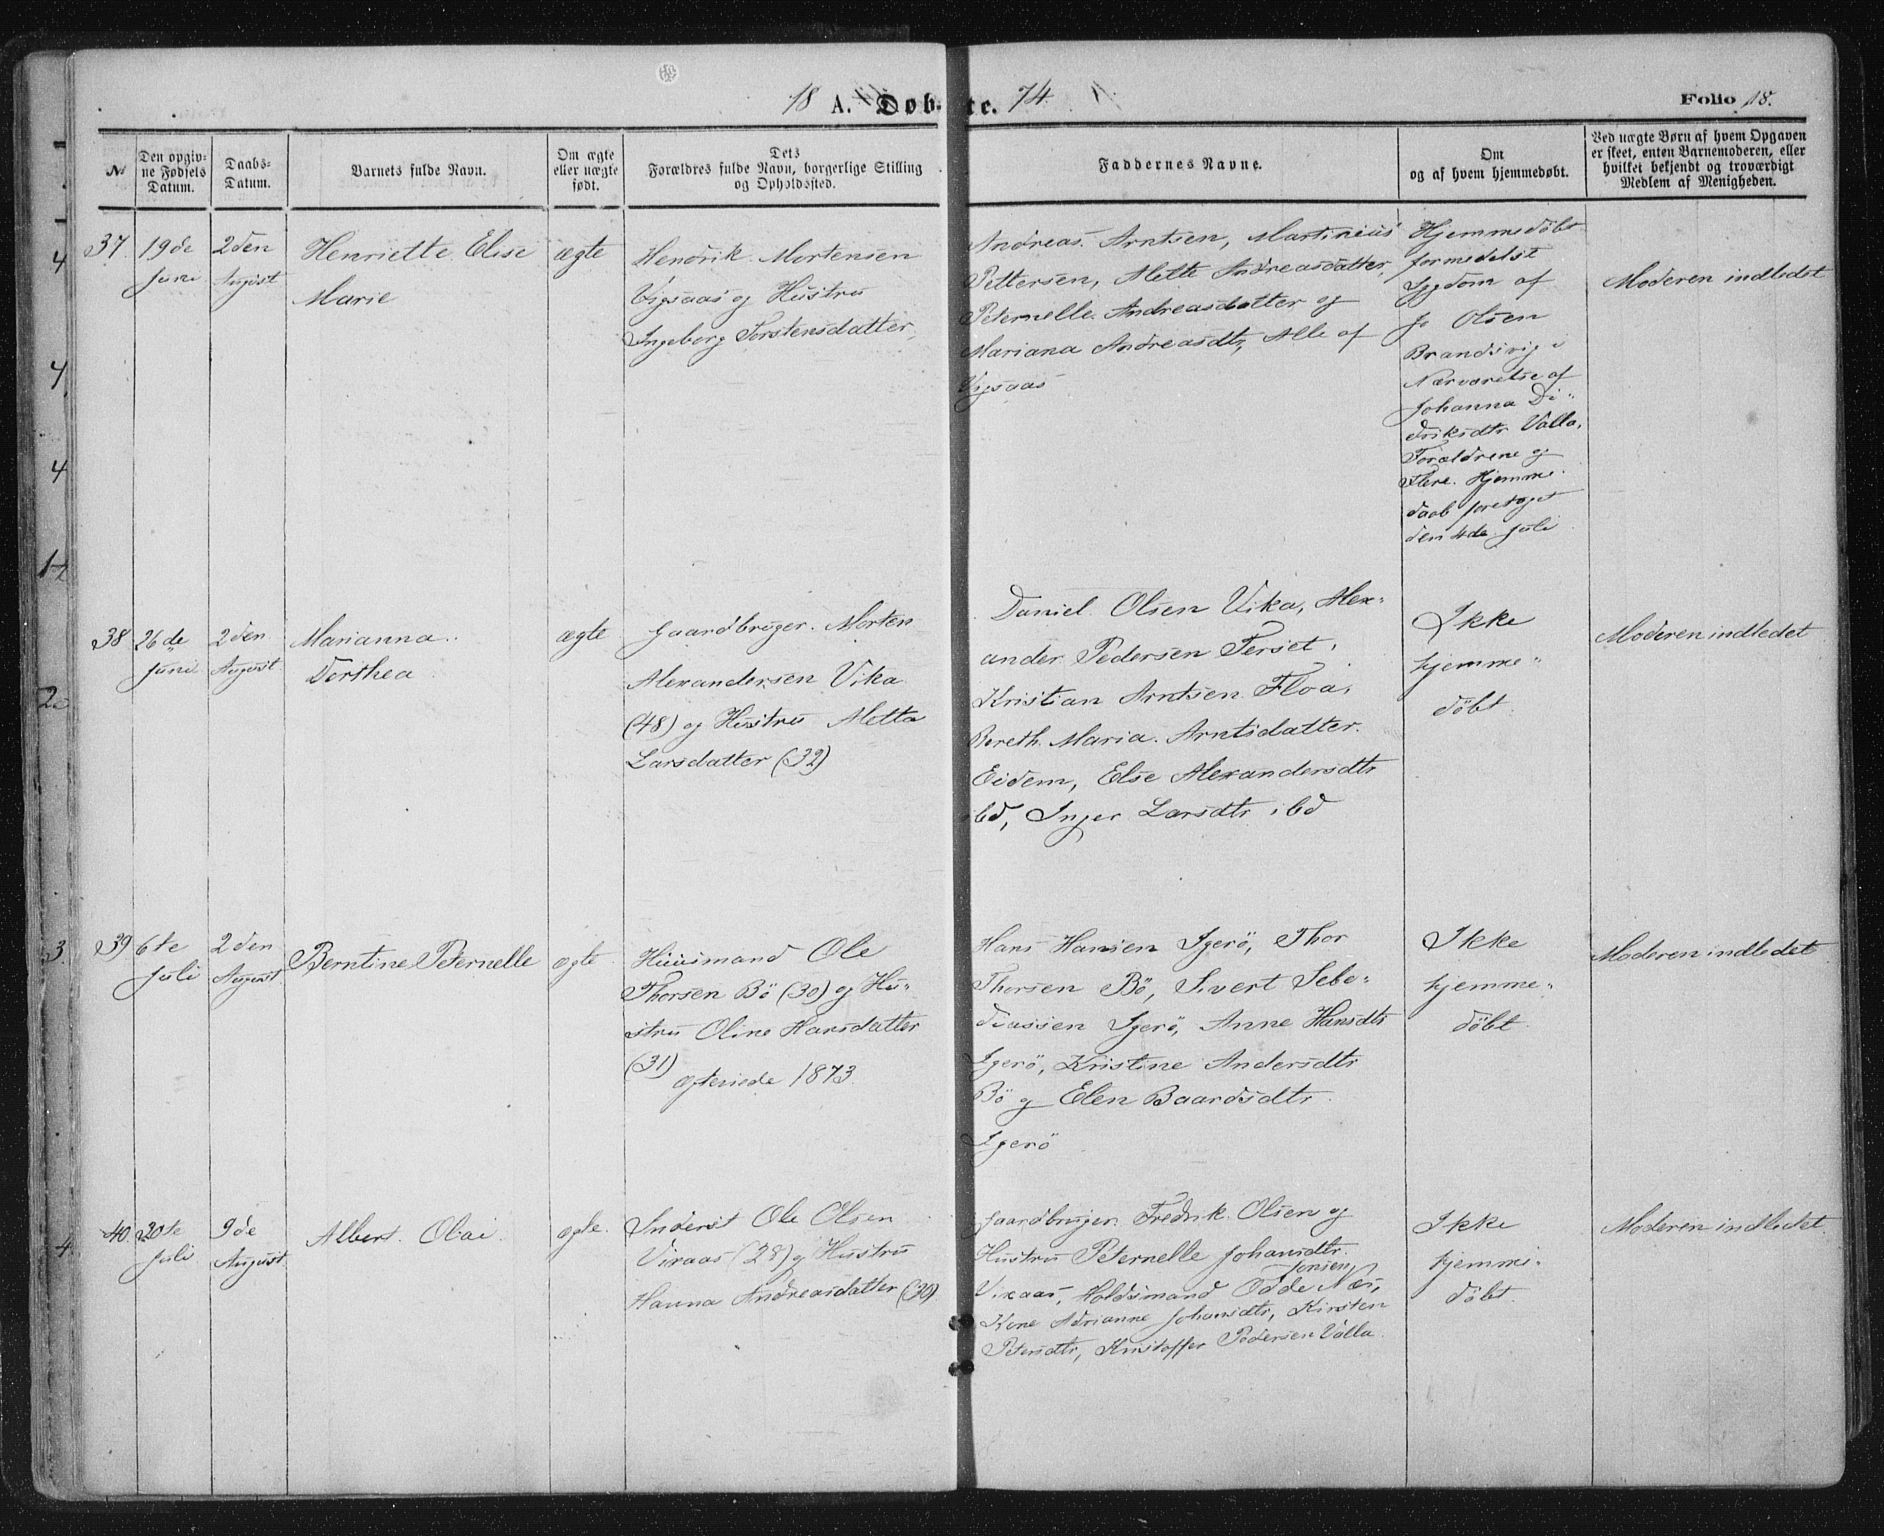 18 A. Døbte. 74. Folio 18.
№
Den opgivne Fødsels Datum.
Daabs-Datum.
Barnets fulde Navn.
Om ægte eller uægte født.
Dets Forældres fulde Navn, borgerlige Stilling og Opholdssted.
Faddernes Navne.
Om og af hvem hjemmedøbt.
Ved uægte Børn af hvem Opgaven er skeet, enten Barnemoderen, eller hvilket bekjendt og troværdigt Medlem af Menigheden.
37
19de
Juni
2den
August
Henriette Elise
Marie
ægte
Hendrik Mortensen
Vigsaas og Hustru
Ingeborg Torstensdatter,
Andreas Arntsen, Martinius
Pettersen, Mette Andreasdatter,
Peternelle Andreasdatter og
Mariana Andreasdtr, Alle af
Vigsaas
Hjemmedöbt
formedelst
Sygdom af
Jo Olsen
Brandsvig i
Nærværelse af
Johanna Di-
driksdtr Valla,
Forældrene og
Flere. Hjemme
daab foretaget
den 4de Juli
Moderen indledet
38
26de
Juni
2den
August
Marianna
Dorthea
ægte
Gaardbruger Morten
Alexandersen Vika
(48) og Hustru Metta
Larsdatter (32)
Daniel Olsen Vika, Alex-
ander Pedersen Forset,
Kristian Arntsen Floa,
Bereth Maria Arntsdatter
Eidem, Else Alexandersdtr
ibd, Inger Larsdtr ibd
Ikke
hjemme-
döbt
Moderen indledet
39
6te
Juli
2den
August
Berntine Peternelle
ægte
Huusmand Ole
Thorsen Bö (30) og Hu-
stru Oline Hansdatter
(31)
ægteviede 1873
Hans Hansen Igerö, Thor
Thorsen Bö, Sivert Sebe-
diassen Igerö, Anne Hansdtr
Igerö, Kristine Andersdtr
Bö og Elen Baardsdtr
Igerö
Ikke
hjemme-
döbt
Moderen indledet
40
20te
Juli
9de
August
Albert Olai
ægte
Inderst Ole Olsen
Vixaas (28) og Hustru
Hanna Andreasdatter (30)
Gaardbruger Fredrik Olsen og
Hustru Peternelle Johansdtr
Vixaas, Holdsmand Odde Jonsen Næs,
Kone Adrianne Johansdtr, Kirsten
Petersdtr, Kristoffer Pedersen Valla
Ikke
hjemme-
döbt
Moderen indledet
4
4
4
2
3.
4